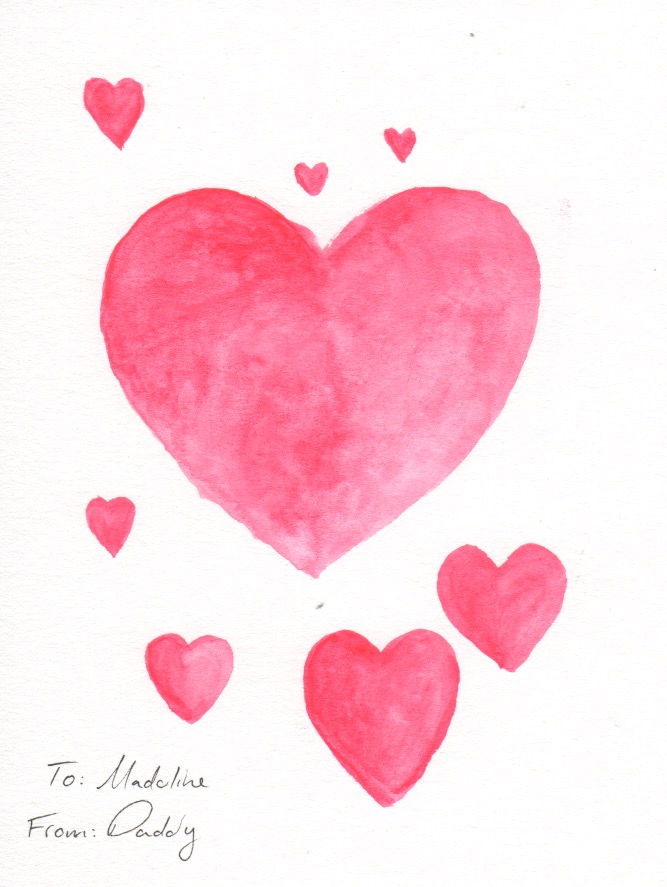 To: Madeline
From: Daddy